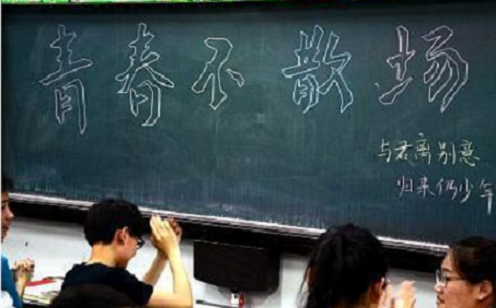 青春不散场
与君离别意
归来仍少年